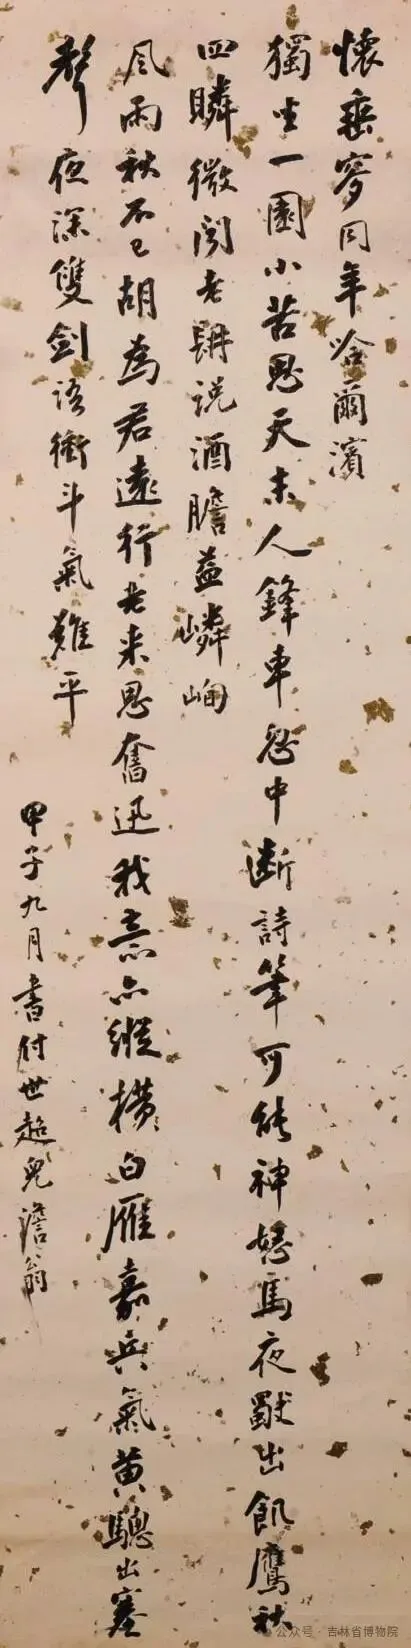 懷垂同年哈爾濱
獨坐一園小苦思天末人鋒車忽中斷詩筆可能神怒馬夜出飢鷹秋
四瞵微聞老説酒膽益嶙峋
風雨秋不已胡為君遠行老来思奮迅我意亦縱橫白雁嘉兵氣黄驄出塞
聲夜深雙劍語衝斗氣難平
甲子九月書付世超兒澹翁
公众号·吉林省博物院